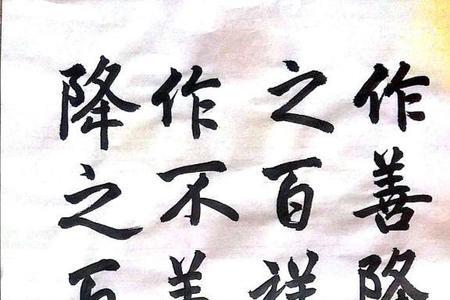 作善降
之百祥
作不善
降之百